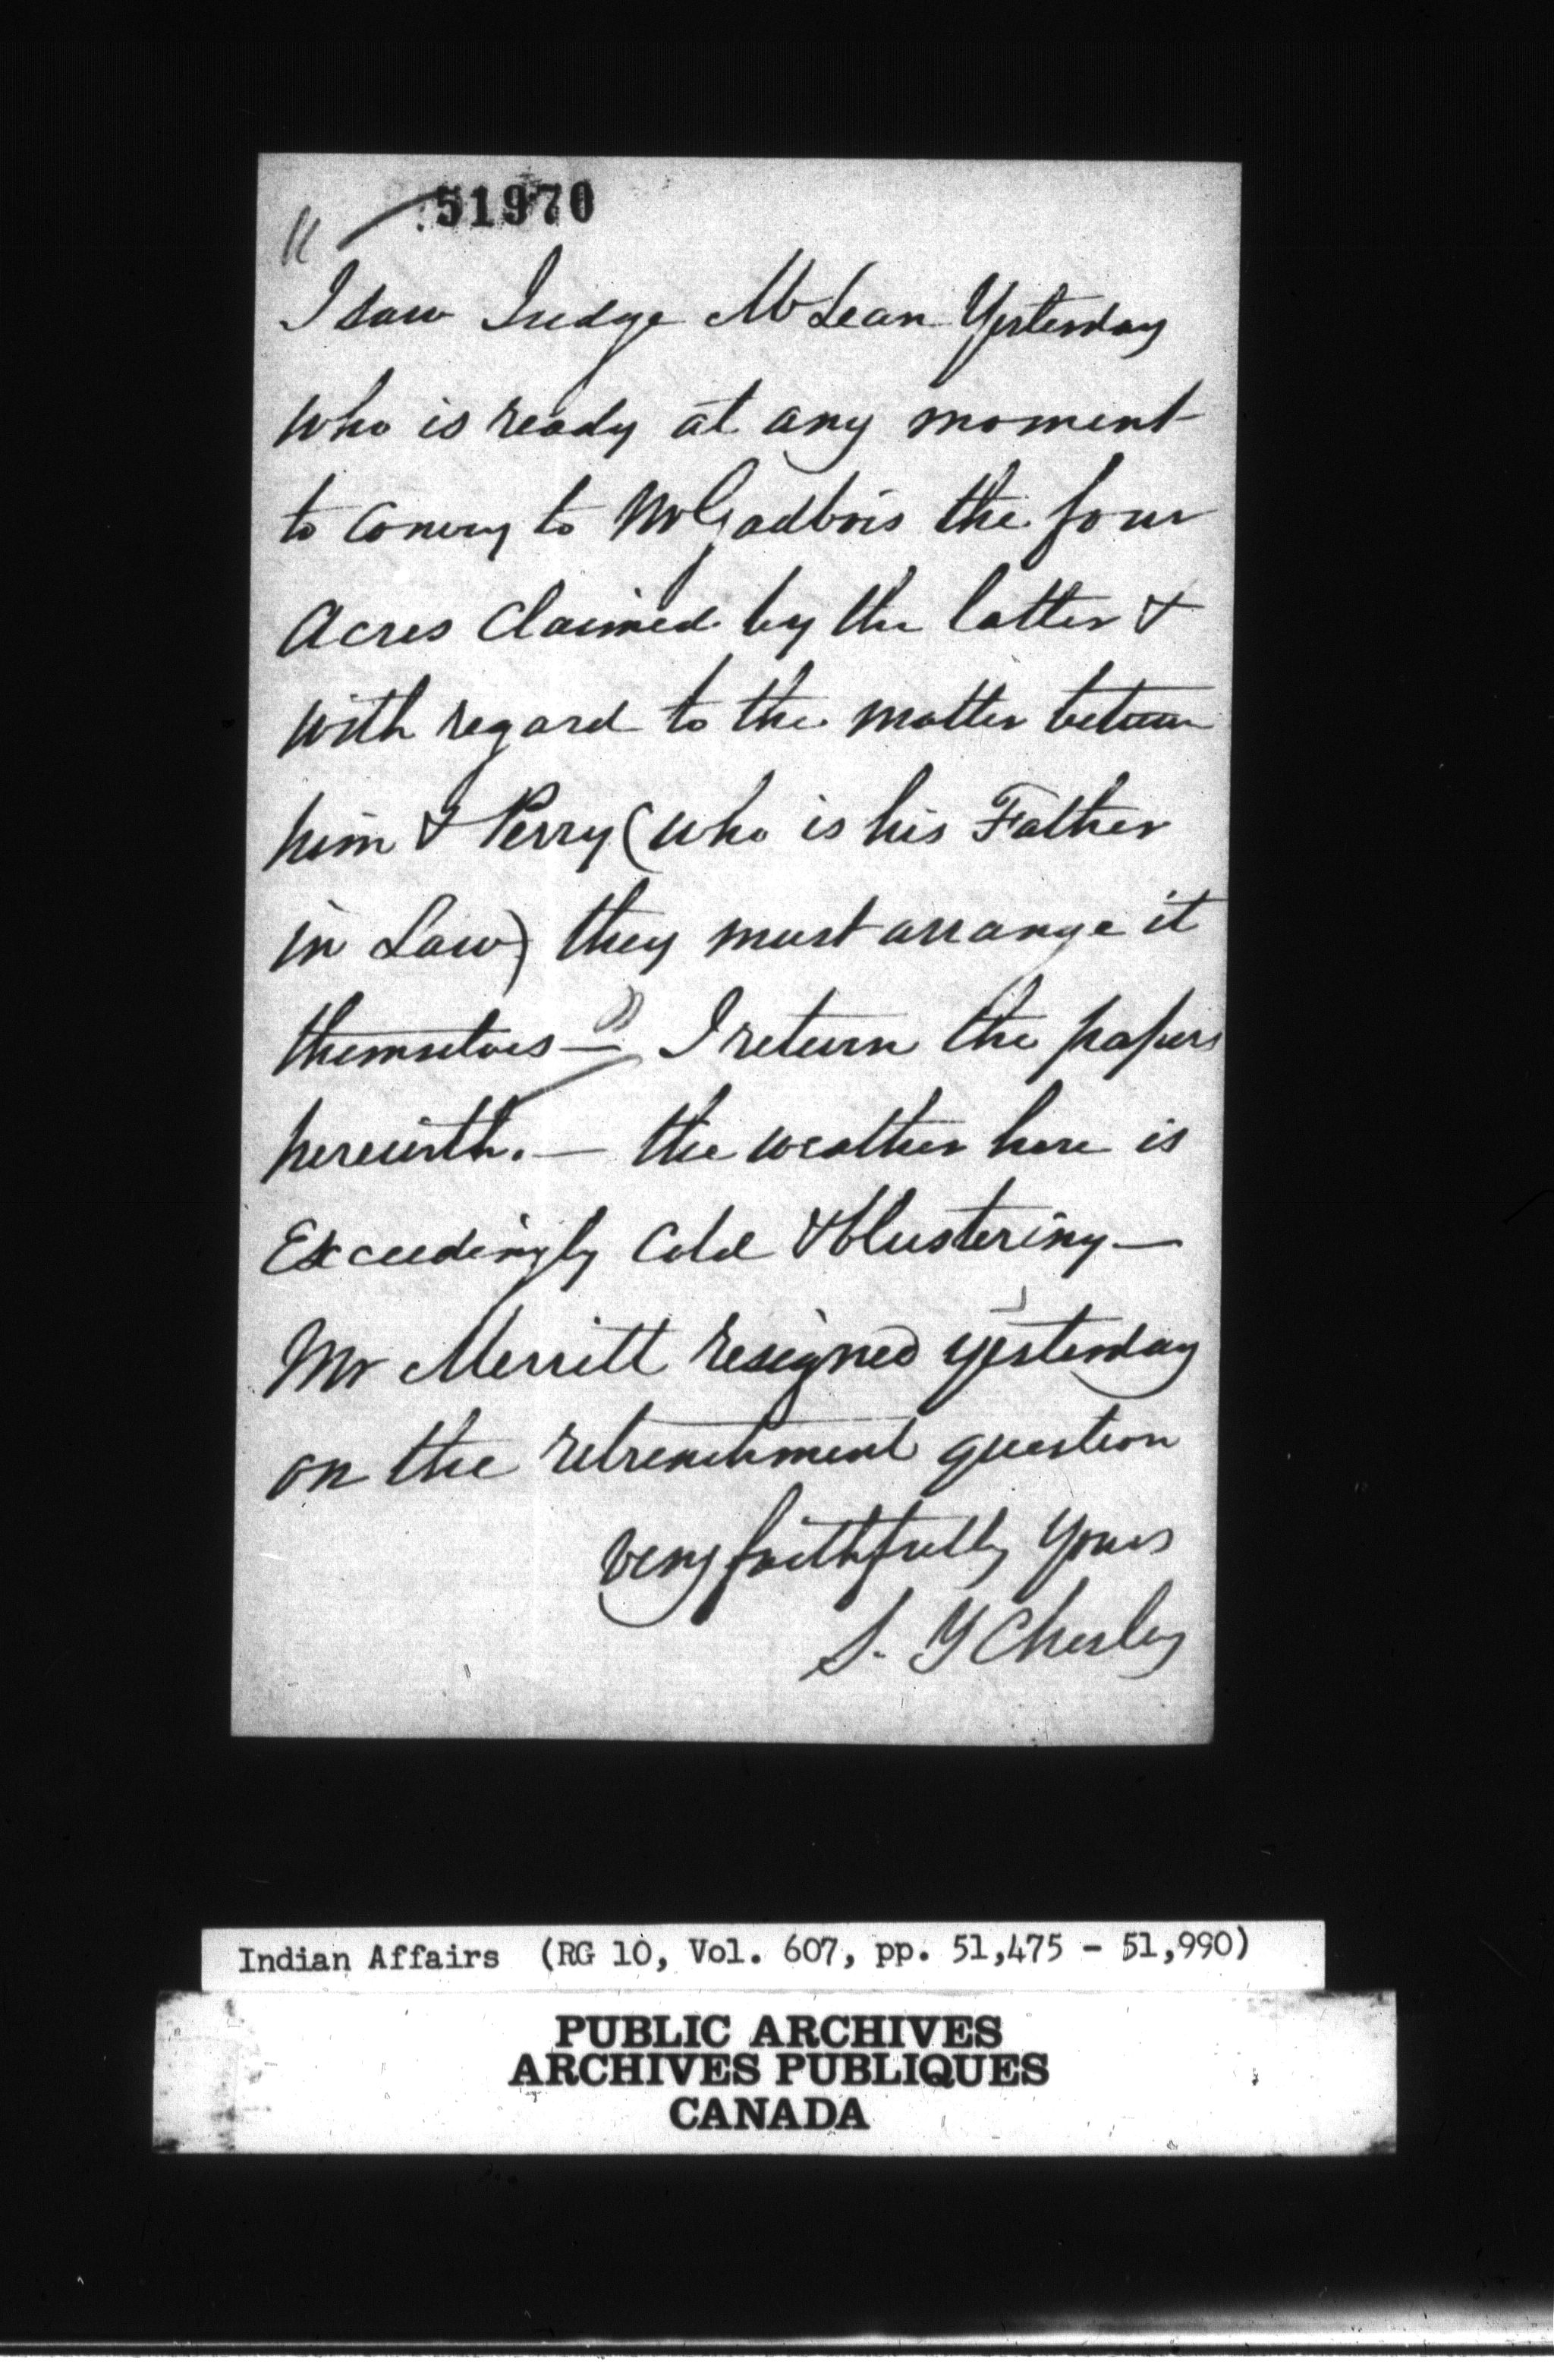 51970
"
I saw Judge McLean Yesterday
who is ready at any moment
to convey to Mr Gadbois the four
Acres Claimed by the latter &
with regard to the matter between
him & Perry (who is his Father
in Law) they must arrange it
themselves — " I return the papers
herewith. — the weather here is
Exceedingly Cold & blustering —
Mr Merritt resigned yesterday
on the retrenchment question
very faithfully Yours
S. Y Chesley
Indian Affairs (RG 10, Vol. 607, pp. 51,475 - 51,990)
PUBLIC ARCHIVES
ARCHIVES PUBLIQUES
CANADA